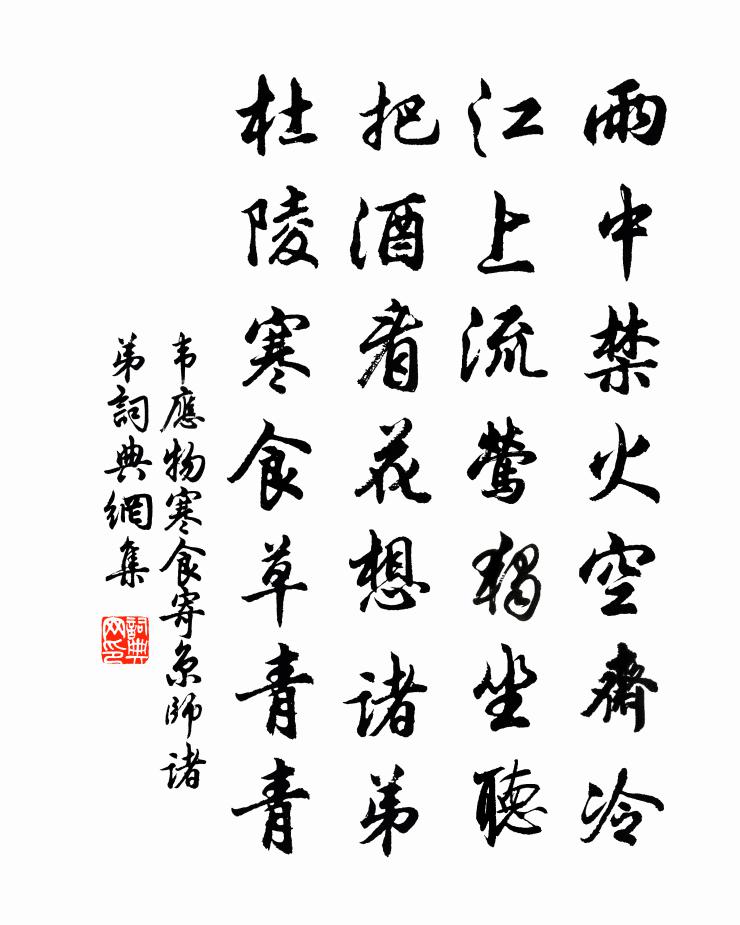 雨中禁火空齋冷
江上流鶯獨坐聽
把酒看花想諸弟
杜陵寒食草青青
韦應物寒食寄京師諸
弟詞典網集
詞典
网印